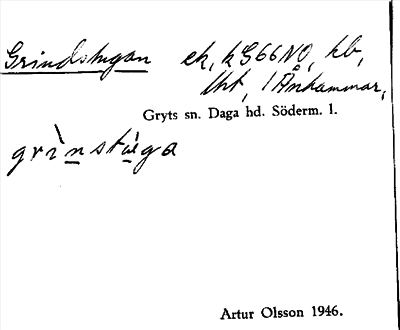 Grindstugan ek, k G66NO, hb,
tht, 1 Ånhammar,
Gryts sn. Daga hd. Söderm. l.
grìnstúga
Artur Olsson 1946.